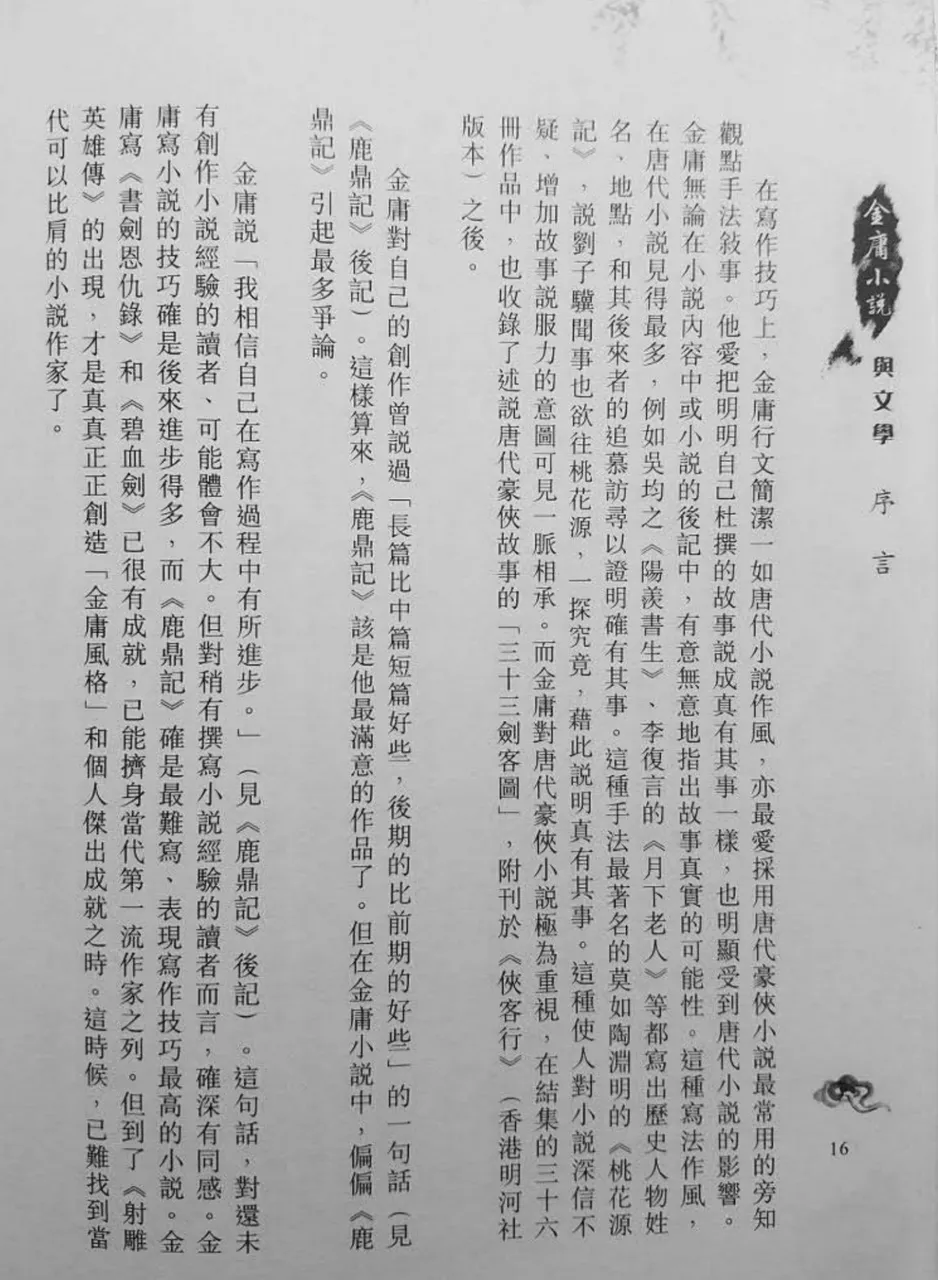 金庸小說
與文學
序言
在寫作技巧上，金庸行文簡潔一如唐代小說作風，亦最愛採用唐代豪俠小說最常用的旁知
觀點手法敍事。他愛把明明自己杜撰的故事說成真有其事一樣，也明顯受到唐代小說的影響。
金庸無論在小說內容中或小說的後記中，有意無意地指出故事真實的可能性。這種寫法作風，
在唐代小說見得最多，例如吳均之《陽羨書生》、李復言的《月下老人》等都寫出歷史人物姓
名、地點，和其後來者的追慕訪尋以證明確有其事。這種手法最著名的莫如陶淵明的《桃花源
記》，說劉子驥聞事也欲往桃花源，一探究竟，藉此說明真有其事。這種使人對小說深信不
疑、增加故事說服力的意圖可見一脈相承。而金庸對唐代豪俠小說極為重視，在結集的三十六
冊作品中，也收錄了述說唐代豪俠故事的「三十三劍客圖」，附刊於《俠客行》（香港明河社
版本）之後。
金庸對自己的創作曾說過「長篇比中篇短篇好些，後期的比前期的好些」的一句話（見
《鹿鼎記》後記）。這樣算來，《鹿鼎記》該是他最滿意的作品了。但在金庸小說中，偏偏《鹿
鼎記》引起最多爭論。
金庸說「我相信自己在寫作過程中有所進步。」（見《鹿鼎記》後記）。這句話，對還未
有創作小說經驗的讀者、可能體會不大。但對稍有撰寫小說經驗的讀者而言，確深有同感。金
庸寫小說的技巧確是後來進步得多，而《鹿鼎記》確是最難寫、表現寫作技巧最高的小說。金
庸寫《書劍恩仇錄》和《碧血劍》已很有成就，已能擠身當代第一流作家之列。但到了《射雕
英雄傳》的出現，才是真真正正創造「金庸風格」和個人傑出成就之時。這時候，已難找到當
代可以比肩的小說作家了。
16